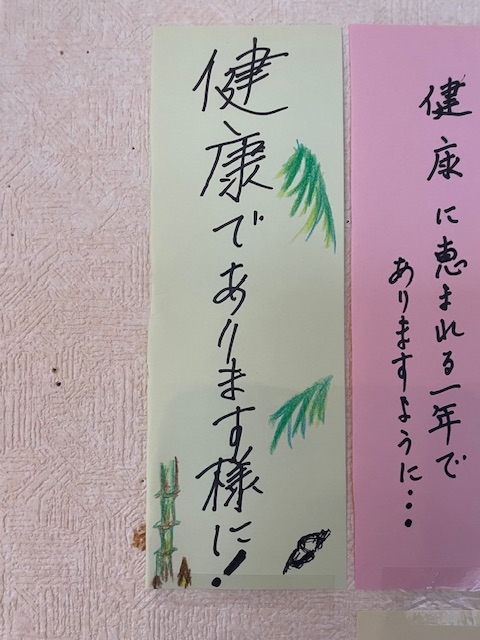 健康であります様に!
健康に恵まれる一年で
ありますように・・・